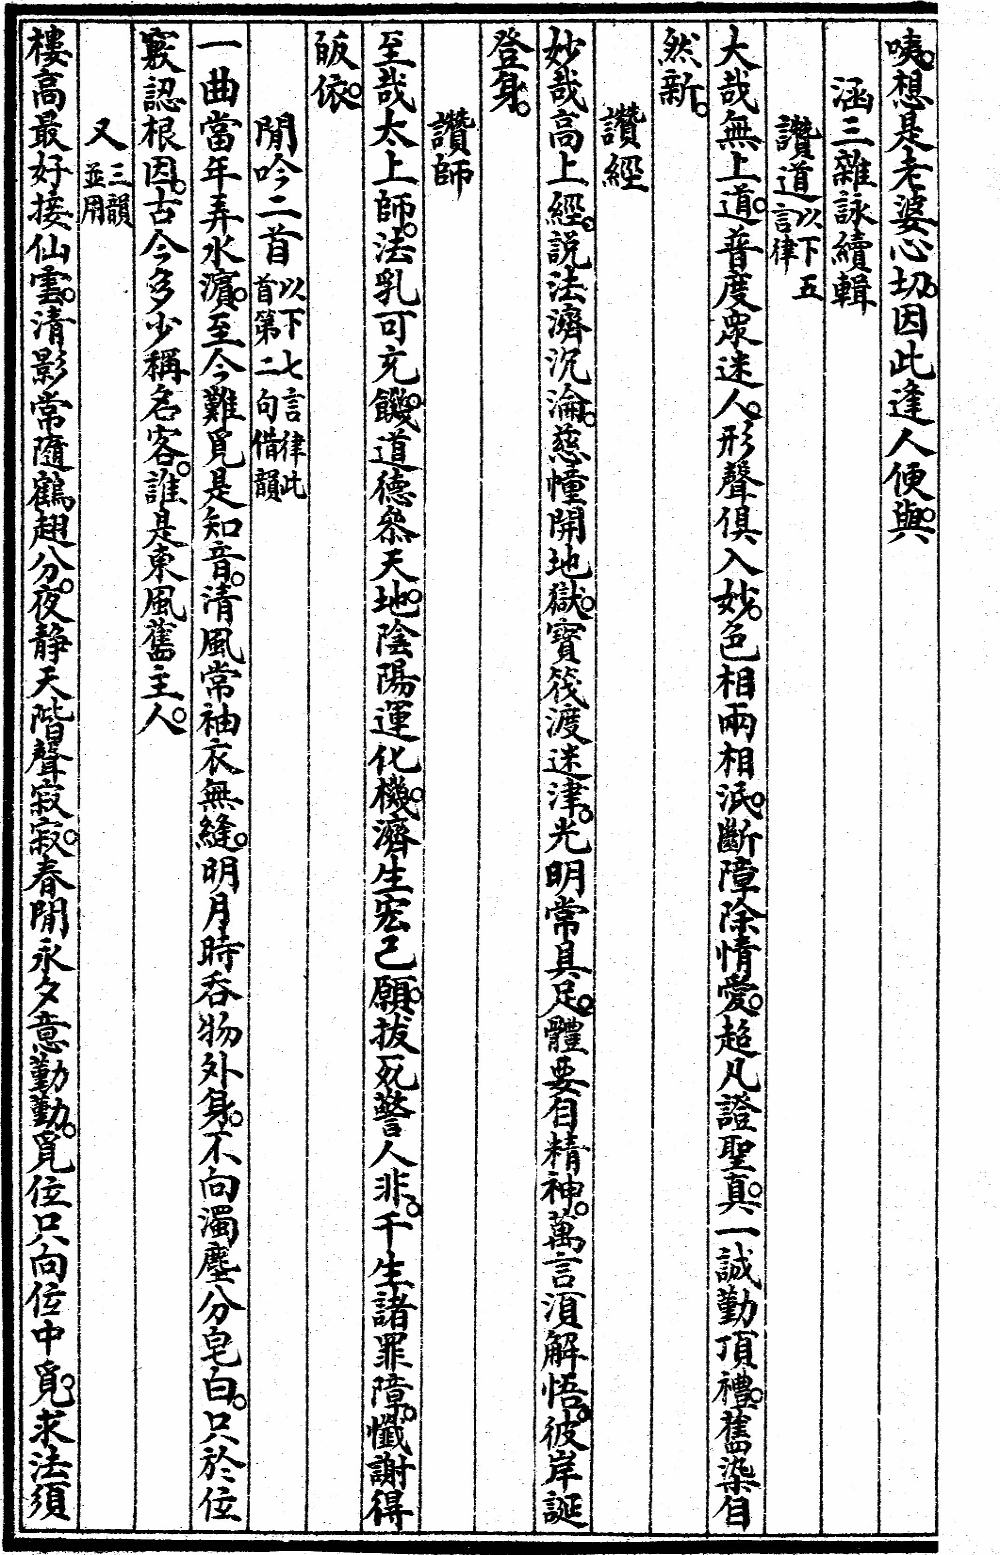 咦。想是老婆心切。因此逢人便與。
涵三雜詠續輯
讚道以下五言律
大哉無上道。普度衆迷人。形聲俱入妙。色相兩相泯。斷障除情愛。超凡證聖真。一誠勤頂禮。舊染自
然新。
讚經
妙哉高上經。説法濟沉淪。慈幢開地獄。寶筏渡迷津。光明常具足。體要自精神。萬言湏解悟。彼岸誕
登身。
讚師
至哉太上師。法乳可充饑。道德叅天地。陰陽運化機。濟生宏己願。拔死警人非。千生諸罪障。懺謝得
皈依。
閒吟二首以下七言律此首第二句借韻
一曲當年弄水濵。至今難覓是知音。清風常袖衣無縫。明月時吞物外身。不向濁塵分皂白。只於位
竅認根因。古今多少稱名客。誰是東風舊主人。
又三韻並用
樓高最好接仙雲。清影常隨鶴趐分。夜静天階聲寂寂。春閒永夕意勤勤。覓位只向位中覓。求法須